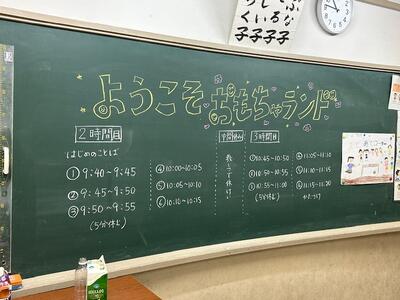 ようこそ おもちゃランド
2時間目
はじめのことば
①9:40~9:45
②9:45~9:50
③9:50~9:55
(5分休み)
④10:00~10:05
⑤10:05~10:10
⑥10:10~10:15
中間休み
3時間目
①10:45~10:50
②10:50~10:55
③10:55~11:00
(5分休み)
④11:05~11:10
⑤11:10~11:15
⑥11:15~11:20
かたづけ